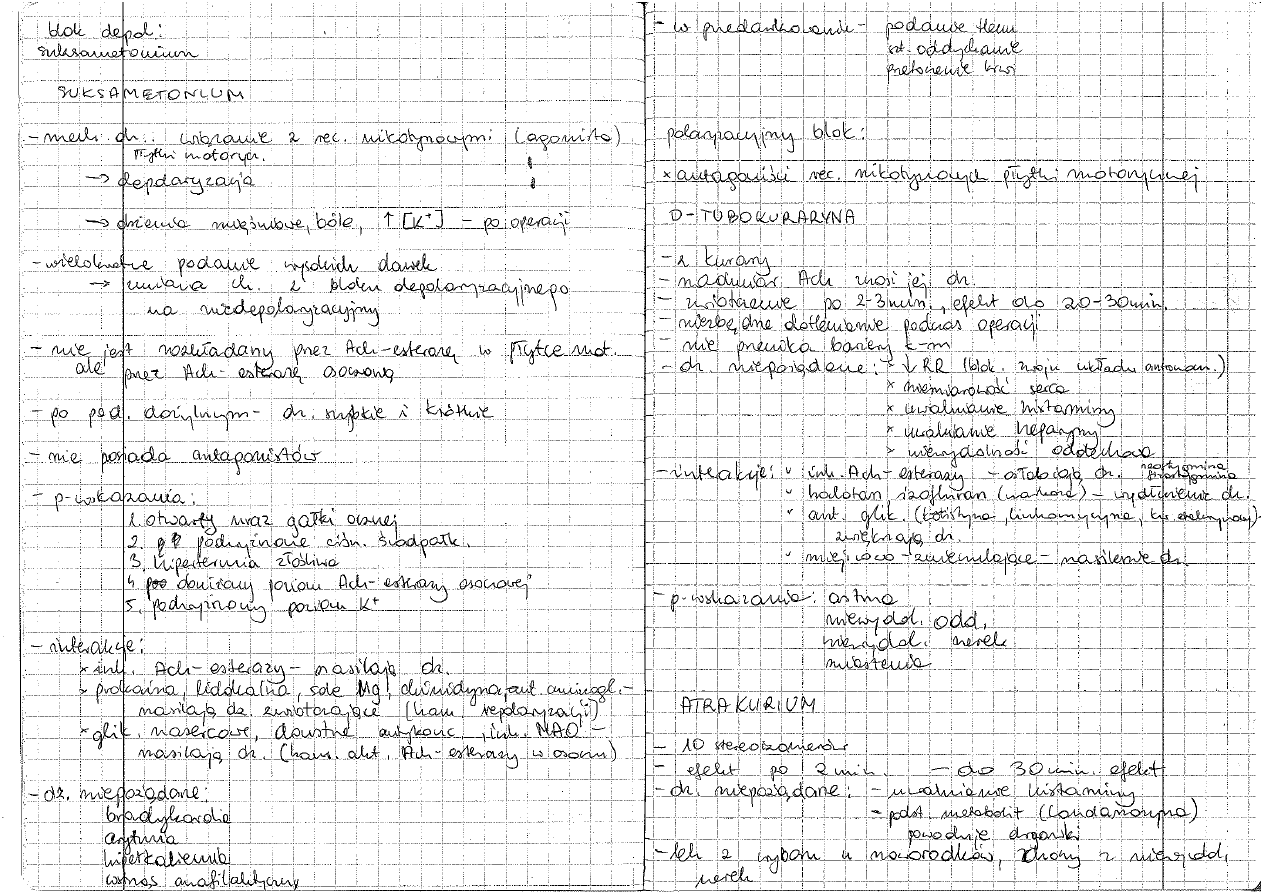 blok depol:
suksametonium
SUKSAMETONIUM
- mech. dz.: wiązanie z rec. nikotynowymi (agonista)
płytki motorycz.
→ depolaryzacja
→ drżenia mięśniowe, bóle, ↑ [K⁺] - po operacji
- wielokrotne podanie wysokich dawek
→ zmiana ch. z bloku depolaryzacyjnego
na niedepolaryzacyjny
- nie jest rozkładany przez Ach-esterazę w płytce mot.
ale przez Ach-esterazę osoczową
- po pod. dożylnym - dz. szybkie i krótkie
- nie posiada antagonistów
- p-wskazania:
1. otwarty uraz gałki ocznej
2. podwyższone ciśn. śródgałk.
3. hipertermia złośliwa
4. obniżony poziom Ach-esterazy osoczowej
5. podwyższony poziom K⁺
- interakcje:
× inh. Ach-esterazy - nasilają dz.
× prokaina, lidokaina, sole Mg, chinidyna, ant. aminogl. -
nasilają dz. zwiotczające (ham. repolaryzacji)
× glik. nasercowe, doustne antykonc., inh. MAO -
nasilają dz. (ham. akt. Ach-esterazy w osoczu)
- dz. niepożądane:
bradykardia
arytmia
hiperkaliemia
wstrząs anafilaktyczny
- w przedawkowaniu - podanie tlenu
szt. oddychanie
przetoczenie krwi
polaryzacyjny blok:
× antagoniści rec. nikotynowych płytki motorycznej
D-TUBOKURARYNA
- z kurary
- nadmiar Ach znosi jej dz.
- zwiotczenie po 2-3min., efekt do 20-30min.
- niezbędne dotlenianie podczas operacji
- nie przenika bariery k-m
- dz. niepożądane: × ↓RR (blok. zwoju układu autonom.)
× niemiarowość serca
× uwalnianie histaminy
× uwalnianie heparyny
× niewydolność oddechowa
- interakcje: ˅ inh. Ach-esterazy - osłabiają dz. neostygmina
˅ halotan, izofluran (narkoza) - wydłużenie dz.
˅ ant. glik. (kolistyna, linkomycyna,
zwiększają dz.
˅ miejscowo-znieczulające - nasilenie dz.
- p-wskazania: astma
niewydol. odd.
niewydol. nerek
miastenia
ATRAKURIUM
- 10 stereoizomerów
- efekt po 2min. - do 30min. efekt
- dz. niepożądane: - uwalnianie histaminy
- metabolit (laudanozyna)
powoduje drgawki
- lek z wyboru u noworodków, chory z niewydol.
nerek